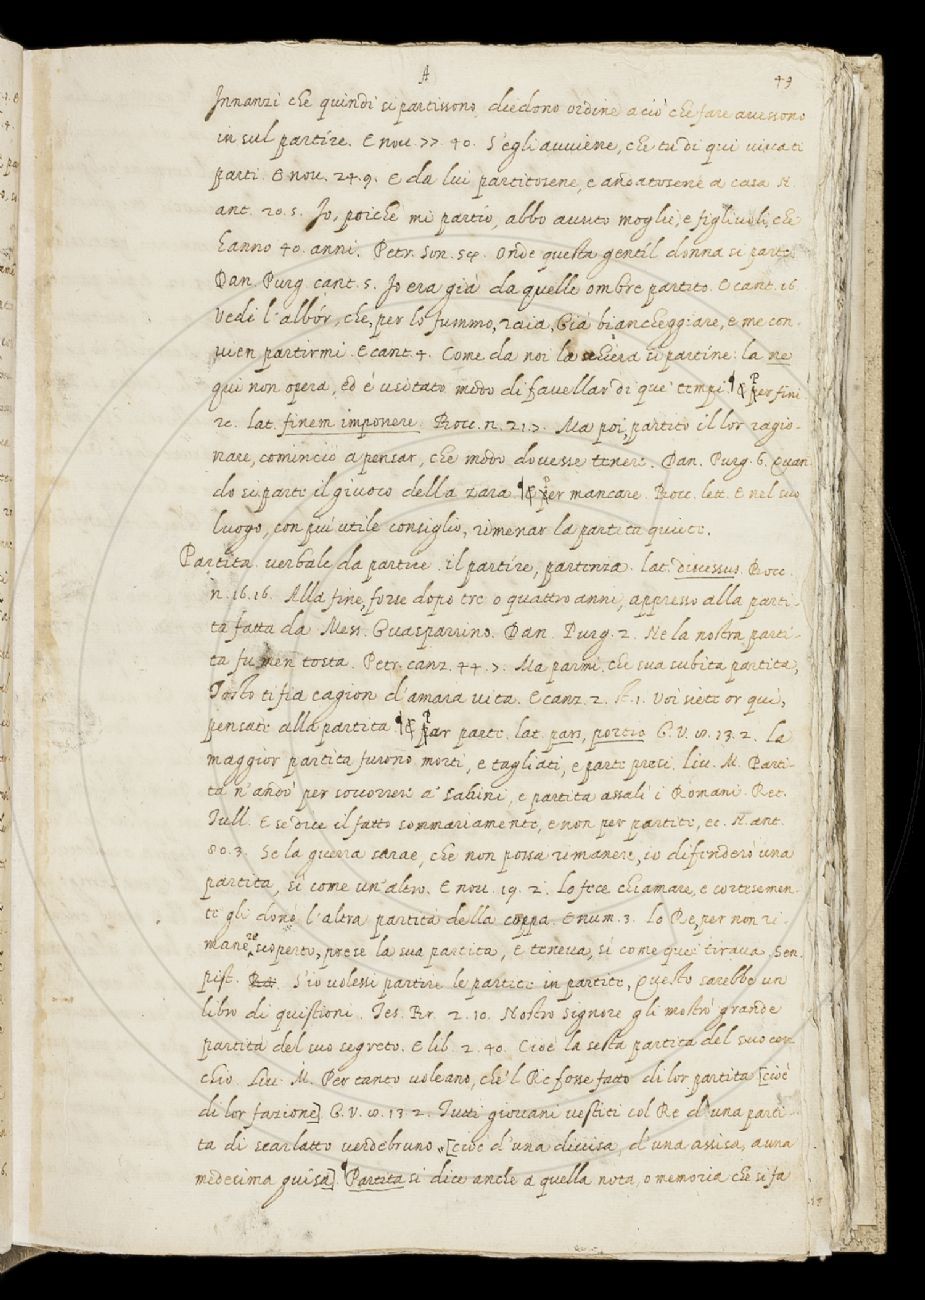 A
49
Innanzi che quindi si partissono, diedono ordine a ciò che fare auessono
in sul partire. E nou. 77. 40. S'egli auuiene, che tu di qui uiua ti
parti. E nou. 24. 9. E da lui partitosene, e andatosene a casa N.
ant. 20. 5. Io, poiche mi partio, abbo auuto moglie, e figliuoli, che
hanno 40. anni. Petr. Son. Onde questa gentil donna si parte.
Dan. Purg. cant. 5. Io era già da quelle ombre partito. E cant. 16
Vedi l'albór, che, per lo fummo, raia, Già biancheggiare, e me con-
uien partirmi. E cant. 4. Come da noi la schiera si partìne: la ne
qui non opera, ed è usitato modo di fauellar di que' tempi ¶ Per fini
re. lat. finem imponere. Bocc. n. 21. 7. Ma poi, partito il lor ragio-
nare, cominciò a pensar, che modo douesse tenere. Dan. Purg. 6. Quan
do si parte il giuoco della zara ¶ Per mancare. Bocc. lett. E nel suo
luogo, con piu utile consiglio, rimenar la partita quiete.
Partita. uerbale da partire. il partire, partenza. lat. discessus. Bocc.
n. 16. 16. Alla fine, forse dopo tre o quattro anni, appresso alla parti-
ta fatta da Mess. Guasparrino. Dan. Purg. 2. Ne la nostra parti-
ta fu men tosta. Petr. canz. 44. 7. Ma parmi, che sua subita partita,
Tosto ti fia cagion d'amara uita. E canz. 2. st. 1. Voi siete or qui,
pensate alla partita ¶ Par parte. lat. pars, portio G. V. 10. 13. 2. La
maggior partita furono morti, e tagliati, e parte presi. Liu. M. Parti-
ta n'andò per soccorrere a' Sabini, e partita assalì i Romani. Ret.
Tull. E se dice il fatto sommariamente, e non per partite, ec. N. ant.
80. 3. Se la guerra sarae, che non possa rimanere, io difenderò una
partita, sì come un'altro. E nou. 19. 2. Lo fece chiamare, e cortesemen-
te gli donò l'altra partita della coppa. E num. 3. Lo Re, per non ri-
manere scoperto, prese la sua partita, e teneua, sì come que' tiraua. Sen.
pist. S'io uolessi partire le partite in partite, Questo sarebbe un
libro di quistioni. Tes. Br. 2. 10. Nostro Signore gli mostrò grande
partita del suo segreto. E lib. 2. 40. Cioè la sesta partita del suo cer-
chio. Liu. M. Per tanto uoleano, che'l Re fosse fatto di lor partita [cioè
di lor fazione] G. V. 10. 13. 2. Tutti giouani uestiti col Re d'una parti-
ta di scarlatto uerdebruno [cioè d'una diuisa, d'una assisa, a una
medesima guisa]. ¶ Partita si dice anche a quella nota, o memoria che si fa